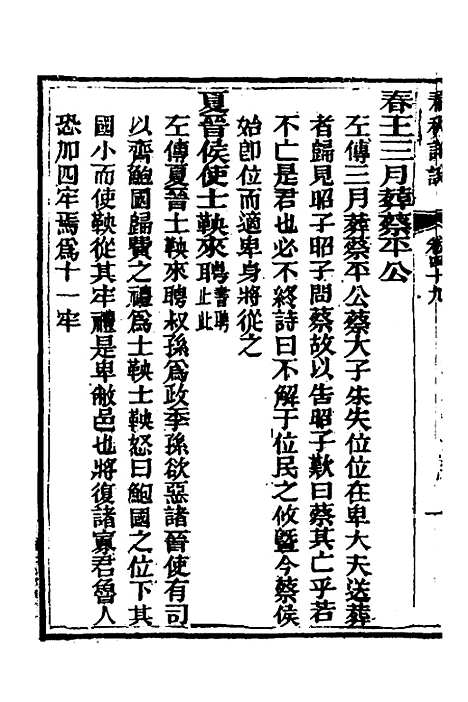 春王三月葬蔡平公
左傳三月葬蔡平公蔡大子朱失位位在卑大夫送葬
者歸見昭子昭子問蔡故以告昭子歎曰蔡其亡乎若
不亡是君也必不終詩曰不解于位民之攸曁今蔡侯
始卽位而適卑身將從之
夏晉侯使士鞅來聘書聘止此
左傳夏晉士鞅來聘叔孫爲政季孫欲惡諸晉使有司
以齊鮑國歸費之禮爲士鞅士鞅怒曰鮑國之位下其
國小而使鞅從其牢禮是卑敝邑也將復諸寡君魯人
恐加四牢焉爲十一牢